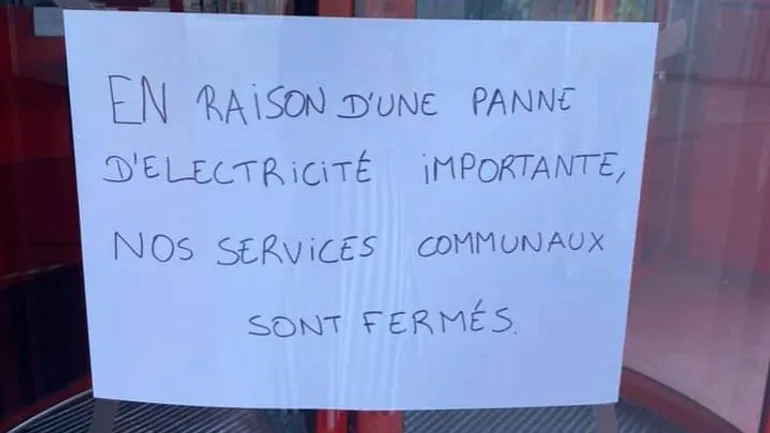 EN RAISON D'UNE PANNE
D'ELECTRICITÉ IMPORTANTE,
NOS SERVICES COMMUNAUX
SONT FERMÉS.